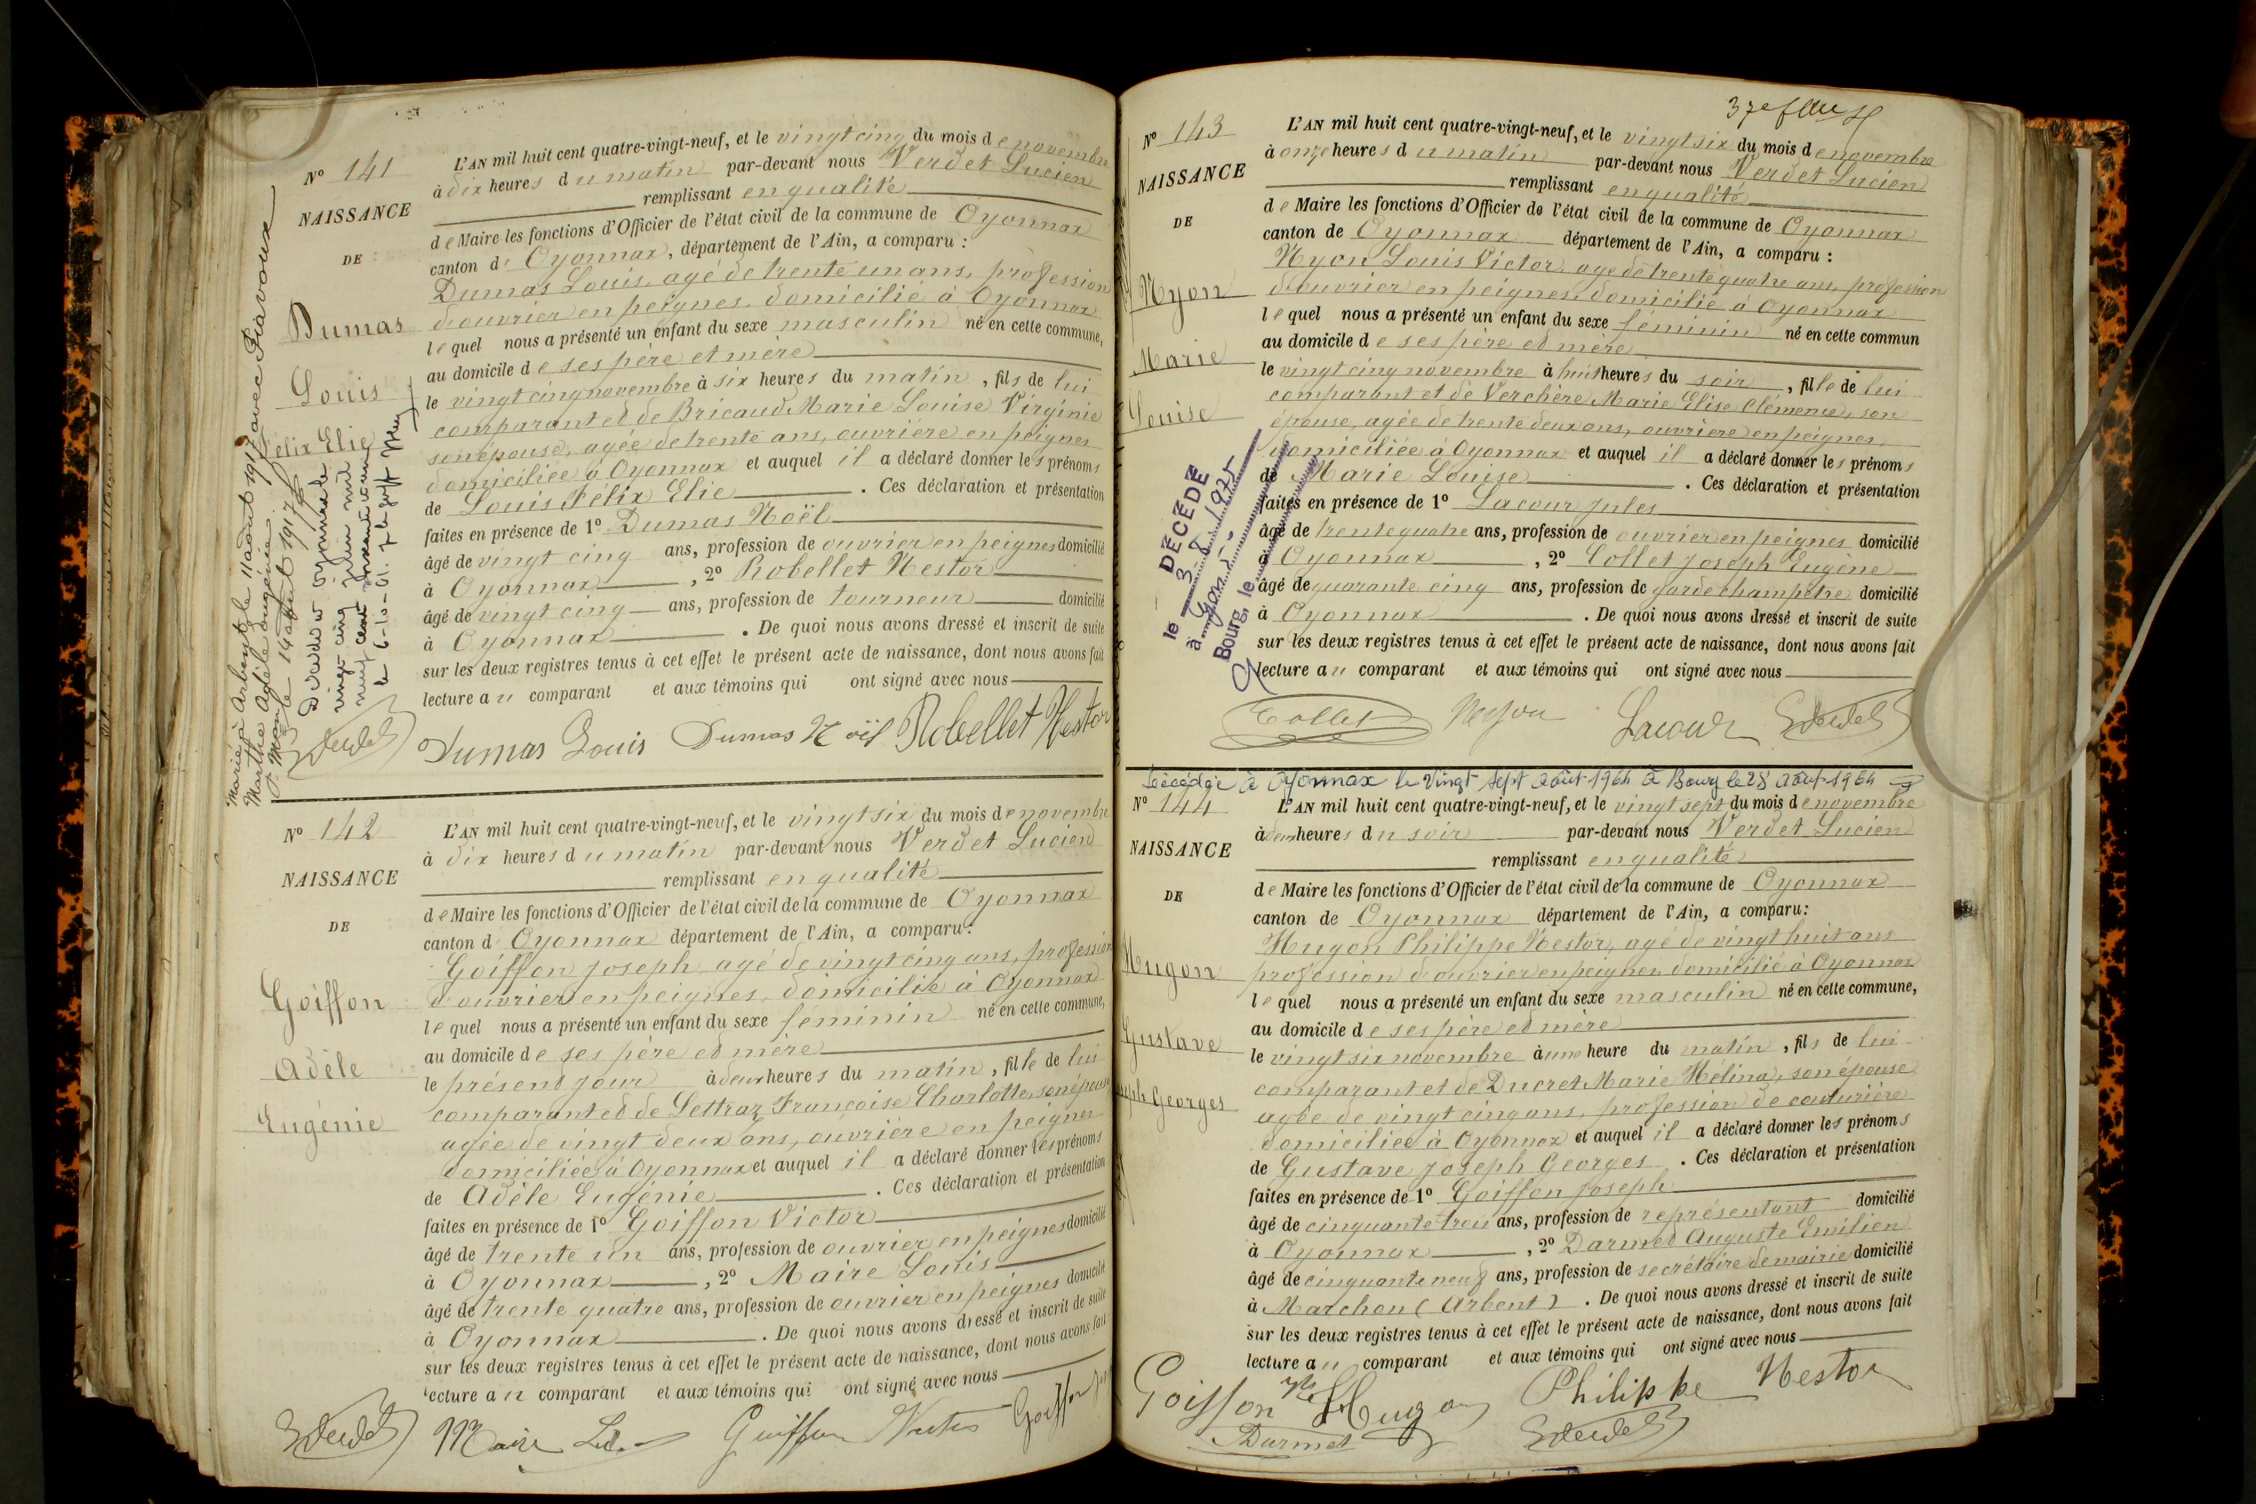 N° 141
NAISSANCE
DE
Dumas
Louis
Félix Elie
L'AN mil huit cent quatre-vingt-neuf, et le vingt cinq du mois de novembre
à dix heures du matin par-devant nous Verdet Lucien
remplissant en qualité
de Maire les fonctions d'Officier de l'état civil de la commune de Oyonnax
canton d' Oyonnax, département de l'Ain, a comparu :
Dumas Louis, agé de trente un ans, profession
d'ouvrier en peignes, domicilié à Oyonnax
lequel nous a présenté un enfant du sexe masculin né en cette commune,
au domicile de ses père et mère
le vingt cinq novembre à six heures du matin, fils de lui
comparant et de Bricaud Marie Louise Virginie
son épouse, agée de trente ans, ouvrière en peignes
domiciliée à Oyonnax et auquel il a déclaré donner les prénoms
de Louis Félix Elie. Ces déclaration et présentation
faites en présence de 1° Dumas Noël
âgé de vingt cinq ans, profession de ouvrier en peignes domicilié
à Oyonnax, 2° Robellet Nestor
âgé de vingt cinq ans, profession de tourneur domicilié
à Oyonnax. De quoi nous avons dressé et inscrit de suite
sur les deux registres tenus à cet effet le présent acte de naissance, dont nous avons fait
lecture au comparant et aux témoins qui ont signé avec nous
Dumas Louis Dumas Noël Robellet Nestor
Marié à Arbent le 11 août 1917 avec
Marthe Adèle Eugénie
le 14 août 1917
Décédé à Oyonnax le
vingt cinq juin mil
neuf cent soixante un
le 6-10-61
N° 142
NAISSANCE
DE
Goiffon
Adèle
Eugénie
L'AN mil huit cent quatre-vingt-neuf, et le vingt six du mois de novembre
à dix heures du matin par-devant nous Verdet Lucien
remplissant en qualité
de Maire les fonctions d'Officier de l'état civil de la commune de Oyonnax
canton d Oyonnax département de l'Ain, a comparu :
Goiffon Joseph agé de vingt cinq ans, profession
d'ouvrier en peignes, domicilié à Oyonnax
lequel nous a présenté un enfant du sexe féminin né en cette commune,
au domicile de ses père et mère
le présent jour à deux heures du matin, fille de lui
comparant et de Lettraz Françoise Charlotte, son épouse
agée de vingt deux ans, ouvrière en peignes
domiciliée à Oyonnax et auquel il a déclaré donner les prénoms
de Adèle Eugénie. Ces déclaration et présentation
faites en présence de 1° Goiffon Victor
âgé de trente un ans, profession de ouvrier en peignes domicilié
à Oyonnax, 2° Maire Louis
âgé de trente quatre ans, profession de ouvrier en peignes domicilié
à Oyonnax. De quoi nous avons dressé et inscrit de suite
sur les deux registres tenus à cet effet le présent acte de naissance, dont nous avons fait
lecture au comparant et aux témoins qui ont signé avec nous
Maire Goiffon Goiffon
N° 143
NAISSANCE
DE
Nyon
Marie
Louise
L'AN mil huit cent quatre-vingt-neuf, et le vingt six du mois de novembre
à onze heures du matin par-devant nous Verdet Lucien
remplissant en qualité
de Maire les fonctions d'Officier de l'état civil de la commune de Oyonnax
canton de Oyonnax département de l'Ain, a comparu :
Nyon Louis Victor, agé de trente quatre ans, profession
d'ouvrier en peignes, domicilié à Oyonnax
lequel nous a présenté un enfant du sexe féminin né en cette commun
au domicile de ses père et mère
le vingt cinq novembre à huit heures du soir, fille de lui
comparant et de Verchère Marie Elise Clémence, son
épouse, agée de trente deux ans, ouvrière en peignes,
domiciliée à Oyonnax et auquel il a déclaré donner les prénoms
de Marie Louise. Ces déclaration et présentation
faites en présence de 1° Lacour Jules
âgé de trente quatre ans, profession de ouvrier en peignes domicilié
à Oyonnax, 2° Collet Joseph Eugène
âgé de quarante cinq ans, profession de garde champêtre domicilié
à Oyonnax. De quoi nous avons dressé et inscrit de suite
sur les deux registres tenus à cet effet le présent acte de naissance, dont nous avons fait
lecture au comparant et aux témoins qui ont signé avec nous
Collet Nyon Lacour
DÉCÉDÉ
le
à
Bourg, le
Décédé à Oyonnax le vingt sept août 1964 à Bourg le 28 août 1964
N° 144
NAISSANCE
DE
Hugon
Gustave
Joseph Georges
L'AN mil huit cent quatre-vingt-neuf, et le vingt sept du mois de novembre
à deux heures du soir par-devant nous Verdet Lucien
remplissant en qualité
de Maire les fonctions d'Officier de l'état civil de la commune de Oyonnax
canton de Oyonnax département de l'Ain, a comparu :
Hugon Philippe Nestor, agé de vingt huit ans
profession d'ouvrier en peignes, domicilié à Oyonnax
lequel nous a présenté un enfant du sexe masculin né en cette commune,
au domicile de ses père et mère
le vingt six novembre à une heure du matin, fils de lui
comparant et de Ducret Marie Mélina, son épouse
agée de vingt cinq ans, profession de couturière
domiciliée à Oyonnax et auquel il a déclaré donner les prénoms
de Gustave Joseph Georges. Ces déclaration et présentation
faites en présence de 1° Goiffon Joseph
âgé de cinquante trois ans, profession de représentant domicilié
à Oyonnax, 2° Darmet Auguste Emilien
âgé de cinquante neuf ans, profession de secrétaire de mairie domicilié
à Marchon (Arbent). De quoi nous avons dressé et inscrit de suite
sur les deux registres tenus à cet effet le présent acte de naissance, dont nous avons fait
lecture au comparant et aux témoins qui ont signé avec nous
Goiffon Hugon Philippe Nestor
Darmet